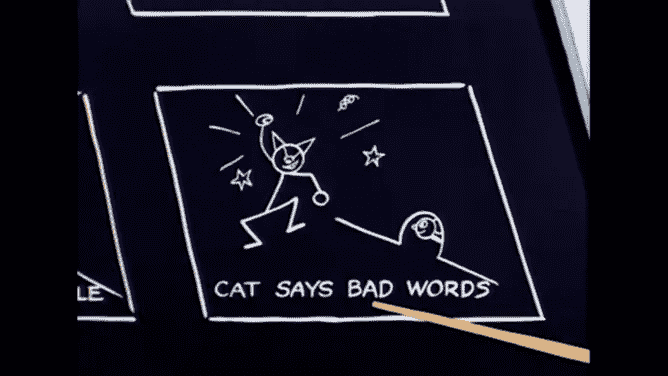 LE
CAT SAYS BAD WORDS